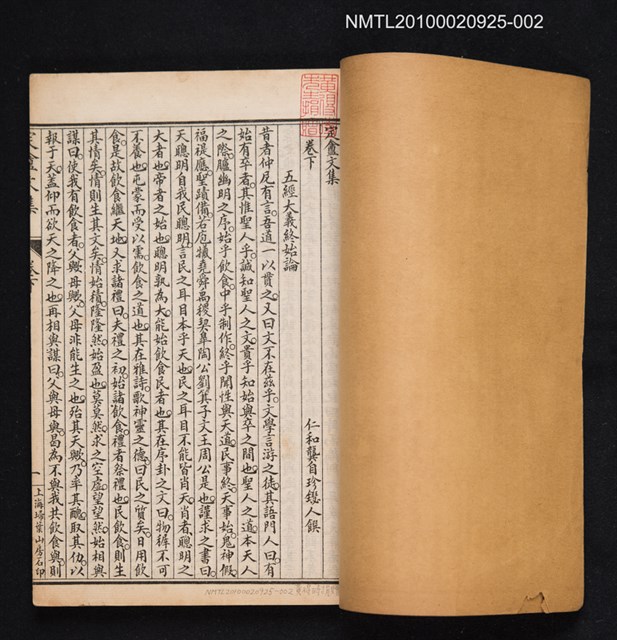 NMTL20100020925-002
定盦文集
卷下
仁和龔自珍璱人譔
五經大義終始論
昔者仲尼有言吾道一以貫之又曰文不在茲乎文學言游之徒其語門人曰有
始有卒者其惟聖人乎誠知聖人之文貴乎知始與卒之間也聖人之道本天人
之際臚幽明之序始乎飲食中乎制作終乎聞性與天道民事終天事始鬼神假
福禔應聖蹟備若庖犧堯舜禹稷契皋陶公劉箕子文王周公是也謹求之書曰
天聰明自我民聰明言民之耳目本乎天也民之耳目不能皆肖天肖者聰明之
大者也帝者之始也聰明孰為大能始飲食民者也其在序卦之文曰物穉不可
不養也屯蒙而受以需飲食之道也其在雅詩歌神靈之德曰民之質矣日用飲
食是故飲食繼天地又求諸禮曰夫禮之初始諸飲食禮者祭禮也民飲食則生
其情矣情則生其文矣情始積隆隆然始盈也莫莫然求之空虛望望然始相與
謀曰使我有飲食者父歟母歟父母非能生之也殆其天歟乃率其醜取其仂以
報于天蓋仰而欲天之降之也再相與謀曰父與母與曷為不與我共飲食與則
定盦文集
卷下
一
上海埽葉山房石印
NMTL20100020925-002